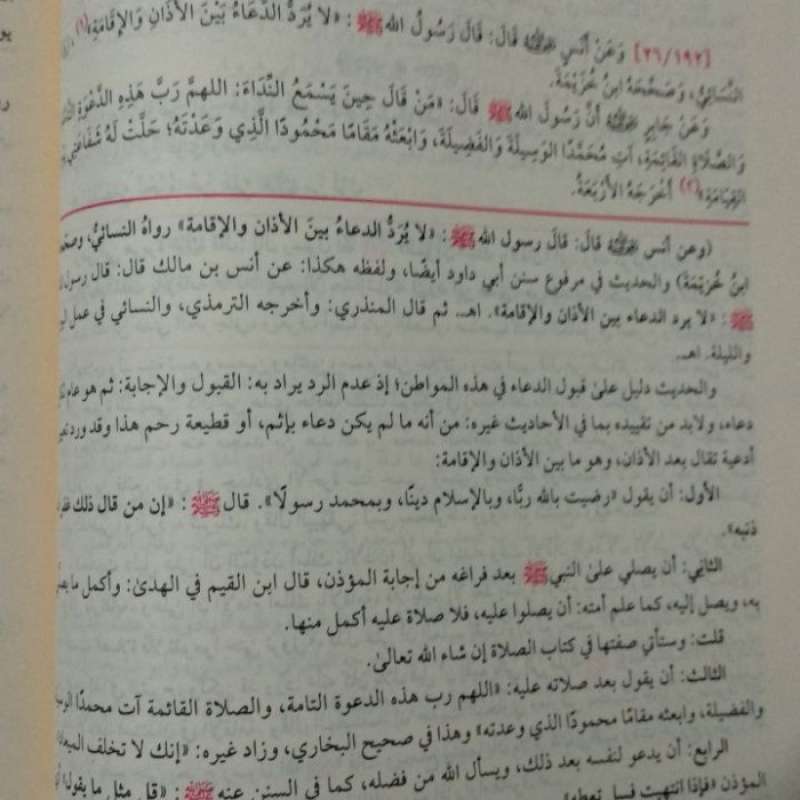 [٢٦/١٩٢] وَعَنْ أَنَسٍ ﵁ قَالَ: قَالَ رَسُولُ اللهِ ﷺ: «لا يُرَدُّ الدُّعَاءُ بَيْنَ الأَذَانِ وَالإِقَامَةِ»(١).
النَّسَائِيُّ، وَصَحَّحَهُ ابْنُ خُزَيْمَةَ.
وَعَنْ جَابِرٍ ﵁ أَنَّ رَسُولَ اللهِ ﷺ قَالَ: «مَنْ قَالَ حِينَ يَسْمَعُ النِّدَاءَ: اللهمَّ رَبَّ هَذِهِ الدَّعْوَةِ
وَالصَّلَاةِ القَائِمَةِ، آتِ مُحَمَّدًا الوَسِيلَةَ وَالفَضِيلَةَ، وَابْعَثْهُ مَقَامًا مَحْمُودًا الَّذِي وَعَدْتَهُ؛ حَلَّتْ لَهُ شَفَاعَتِي
القِيَامَةِ»(٢) أَخْرَجَهُ الأَرْبَعَةُ.
(وعن أنس ﵁ قالَ: قالَ رسول الله ﷺ: «لا يُرَدُّ الدعاءُ بينَ الأذان والإقامة» رواهُ النسائيُّ،
ابنُ خُزَيْمَةَ) والحديث في مرفوع سنن أبي داود أيضًا، ولفظه هكذا: عن أنس بن مالك قال: قال رسول
ﷺ: «لا يرد الدعاء بين الأذان والإقامة». اهـ. ثم قال المنذري: وأخرجه الترمذي، والنسائي في عمل
والليلة. اهـ.
والحديث دليل على قبول الدعاء في هذه المواطن؛ إذ عدم الرد يراد به: القبول والإجابة: ثم هو عام
دعاء، ولابد من تقييده بما في الأحاديث غيره: من أنه ما لم يكن دعاء بإثم، أو قطيعة رحم هذا وقد ورد
أدعية تقال بعد الأذان، وهو ما بين الأذان والإقامة:
الأول: أن يقول «رضيت بالله ربًّا، وبالإسلام دينًا، وبمحمد رسولًا». قال ﷺ: «إن من قال ذلك
ذنبه».
الثاني: أن يصلي على النبي ﷺ بعد فراغه من إجابة المؤذن، قال ابن القيم في الهدى: وأكمل ما
به، ويصل إليه، كما علم أمته: أن يصلوا عليه، فلا صلاة عليه أكمل منها.
قلت: وستأتي صفتها في كتاب الصلاة إن شاء الله تعالى.
الثالث: أن يقول بعد صلاته عليه: «اللهم رب هذه الدعوة التامة، والصلاة القائمة آت محمدًا
والفضيلة، وابعثه مقامًا محمودًا الذي وعدته» وهذا في صحيح البخاري، وزاد غيره: «إنك لا تخلف
الرابع: أن يدعو لنفسه بعد ذلك، ويسأل الله من فضله، كما في السنن عنه ﷺ: «قل مثل ما يقول»
المؤذن «فإذا انتهيت فسل تعطه»